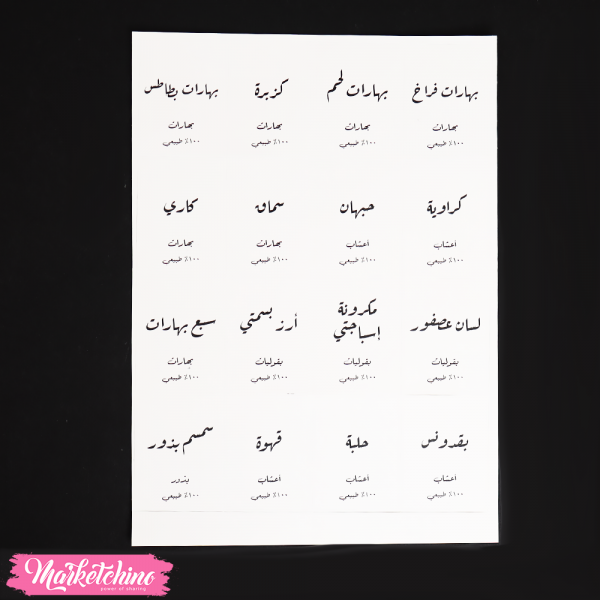 بهارات فراخ
بهارات
١٠٠٪ طبيعي
بهارات لحم
بهارات
١٠٠٪ طبيعي
كزبرة
بهارات
١٠٠٪ طبيعي
بهارات بطاطس
بهارات
١٠٠٪ طبيعي
كراوية
أعشاب
١٠٠٪ طبيعي
حبهان
أعشاب
١٠٠٪ طبيعي
سماق
بهارات
١٠٠٪ طبيعي
كاري
بهارات
١٠٠٪ طبيعي
لسان عصفور
بقوليات
١٠٠٪ طبيعي
مكرونة
إسباجتي
بقوليات
١٠٠٪ طبيعي
أرز بسمتي
بقوليات
١٠٠٪ طبيعي
سبع بهارات
بهارات
١٠٠٪ طبيعي
بقدونس
أعشاب
١٠٠٪ طبيعي
حلبة
أعشاب
١٠٠٪ طبيعي
قهوة
أعشاب
١٠٠٪ طبيعي
سمسم بذور
بذور
١٠٠٪ طبيعي
Marketchino
power of sharing